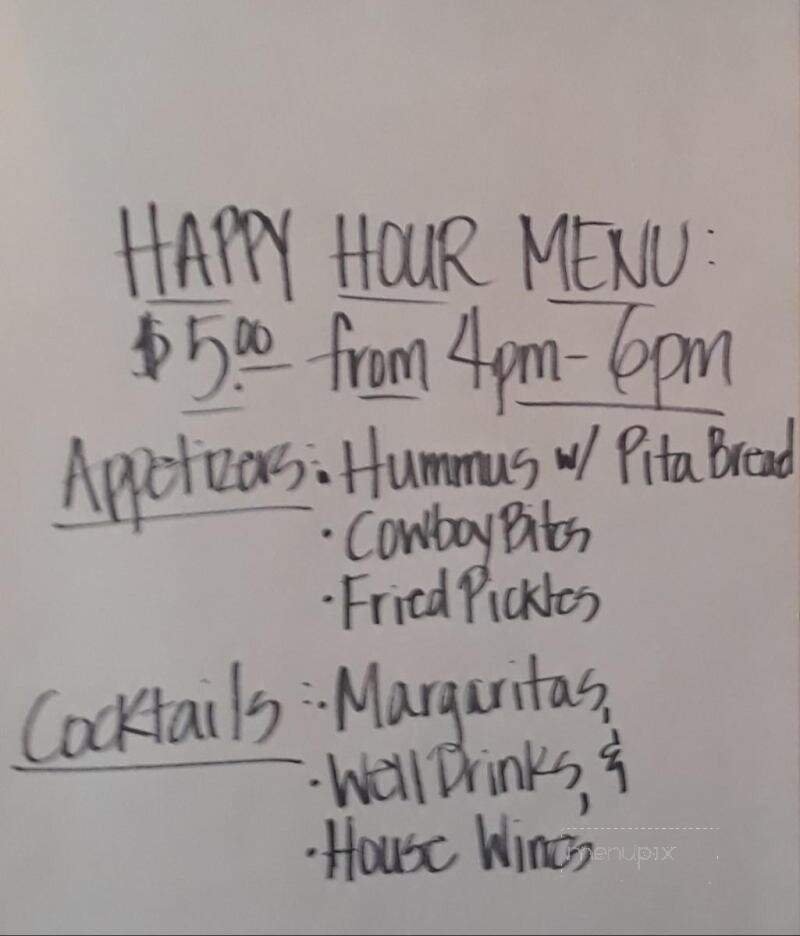 HAPPY HOUR MENU:
$5.00 from 4pm-6pm
Appetizers: • Hummus w/ Pita Bread
• Cowboy Bites
• Fried Pickles
Cocktails: • Margaritas,
• Well Drinks, &
• House Wines
menupix